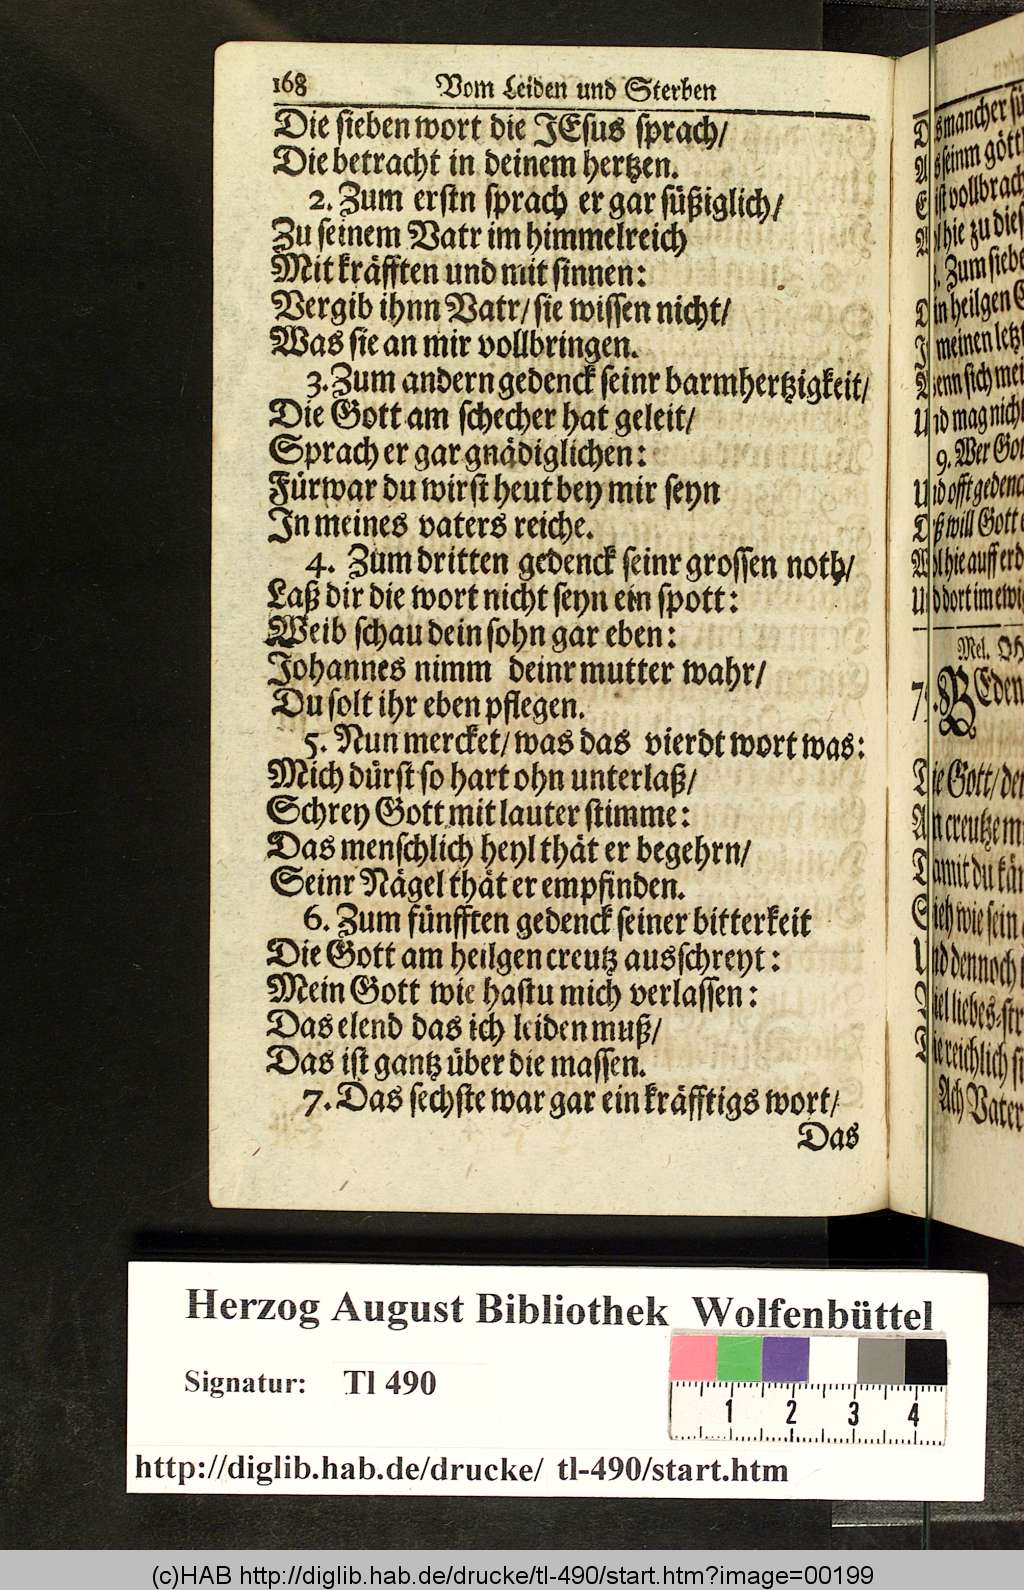 168 Vom Leiden und Sterben
Die sieben wort die JEsus sprach/
Die betracht in deinem hertzen.
2. Zum erstn sprach er gar süßiglich/
Zu seinem Vatr im himmelreich
Mit kräfften und mit sinnen:
Vergib ihnn Vatr/ sie wissen nicht/
Was sie an mir vollbringen.
3. Zum andern gedenck seinr barmhertzigkeit/
Die Gott am schecher hat geleit/
Sprach er gar gnädiglichen:
Fürwar du wirst heut bey mir seyn
In meines vaters reiche.
4. Zum dritten gedenck seinr grossen noth/
Laß dir die wort nicht seyn ein spott:
Weib schau dein sohn gar eben:
Johannes nimm deinr mutter wahr/
Du solt ihr eben pflegen.
5. Nun mercket/ was das vierdt wort was:
Mich dürst so hart ohn unterlaß/
Schrey Gott mit lauter stimme:
Das menschlich heyl thät er begehrn/
Seinr Nägel thät er empfinden.
6. Zum fünfften gedenck seiner bitterkeit
Die Gott am heilgen creutz ausschreyt:
Mein Gott wie hastu mich verlassen:
Das elend das ich leiden muß/
Das ist gantz über die massen.
7. Das sechste war gar ein kräfftigs wort/
Das
mancher
vollbrach
hie zu
Zum
heilgen
meinen
sich
mag nicht
9. Wer
offt
will Gott
hie auff
dort im
Mel.
Gott/
creutze
du
wie sein
dennoch
reichlich
Ach Vater
Herzog August Bibliothek Wolfenbüttel
Signatur: Tl 490
1 2 3 4
http://diglib.hab.de/drucke/ tl-490/start.htm
(c)HAB http://diglib.hab.de/drucke/tl-490/start.htm?image=00199